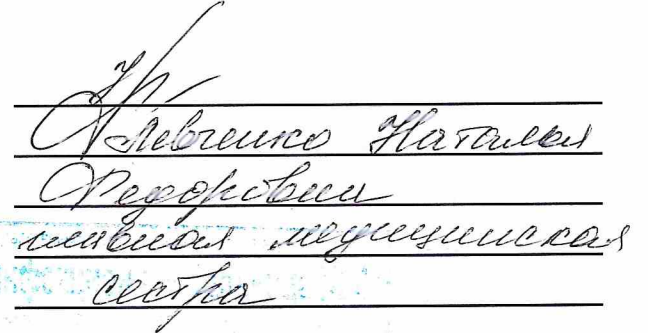 Левченко Наталья
Федоровна
главная медицинская
сестра